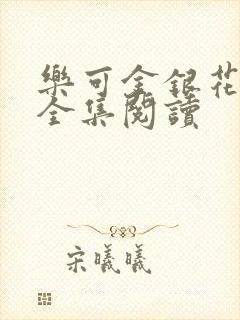 樂可金銀花
全集閱讀
宋曦曦